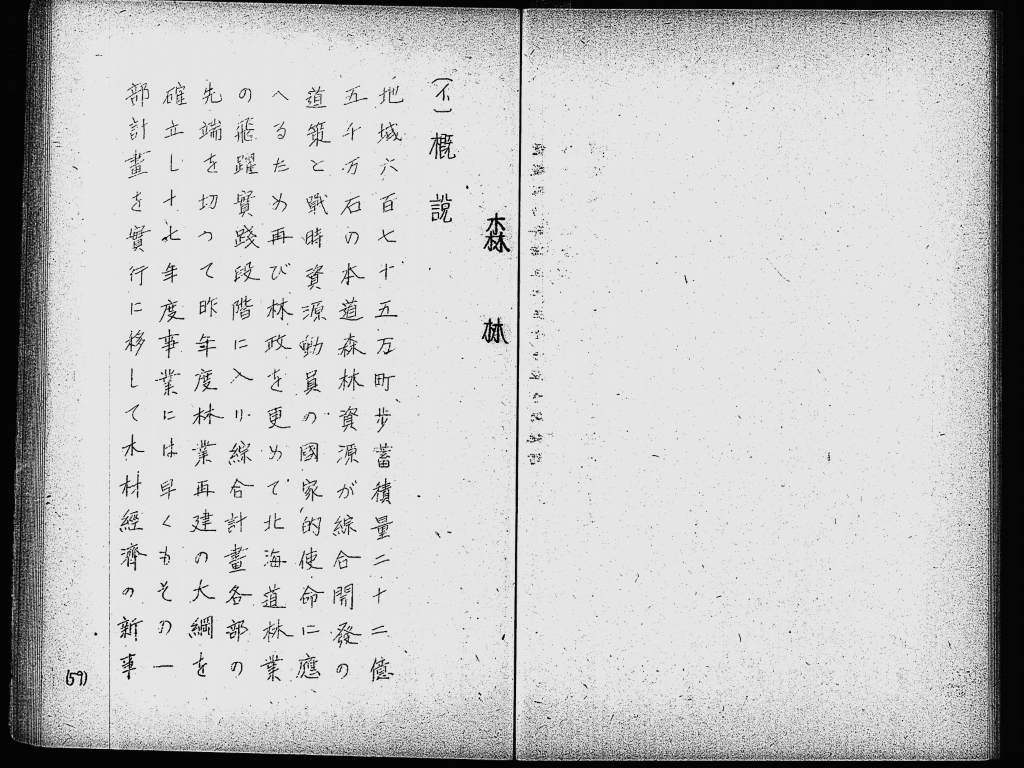 森林
(イ)概説
地域六百七十五万町歩蓄積量二十二億
五千万石の本道森林資源が綜合開發の
道策と戰時資源動員の國家的使命に應
へるため再び林政を更めて北海道林業
の飛躍實踐段階に入り綜合計畫各部の
先端を切つて昨年度林業再建の大綱を
確立し十七年度事業には早くもその一
部計畫を實行に移して木材經濟の新事
(59)